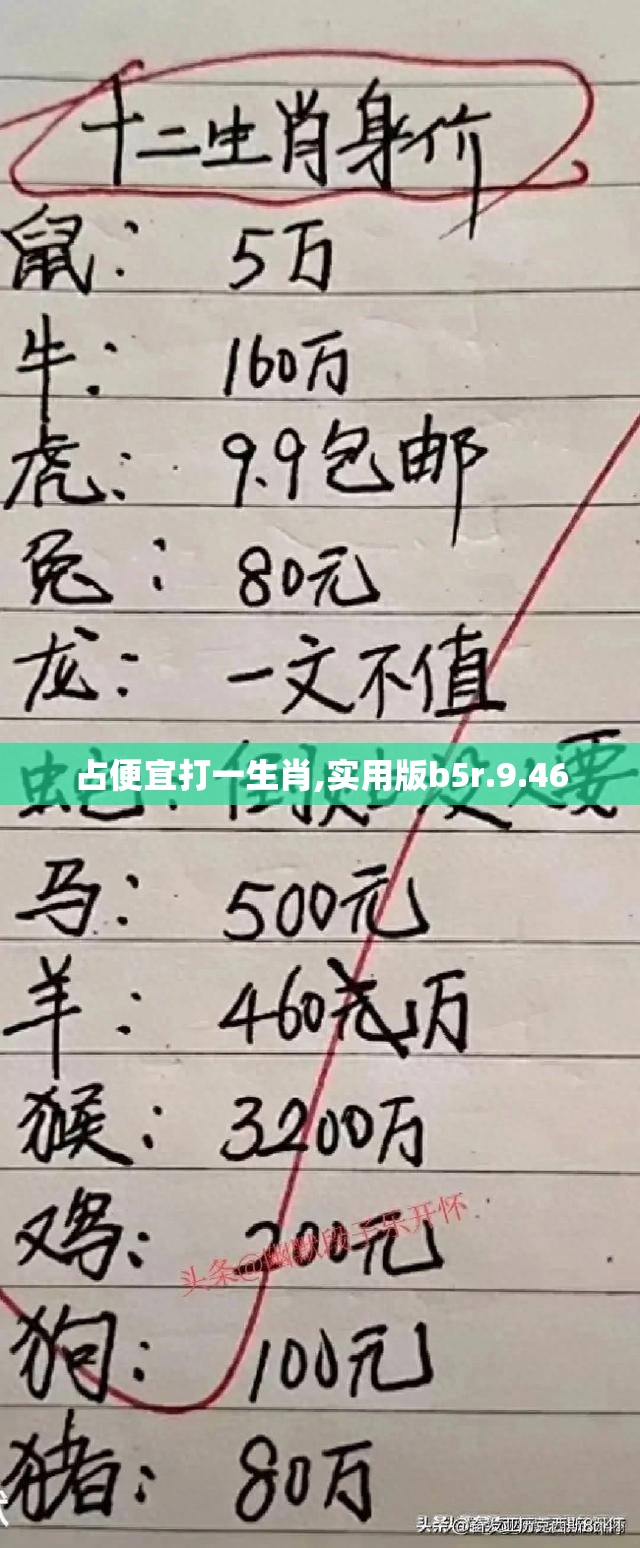 十二生肖身价
鼠：5万
牛：160万
虎：9.9包邮
兔：80元
龙：一文不值
占便宜打一生肖,实用版b5r.9.46
马：500元
羊：460万
猴：3200万
鸡：200元
头条@幽默段子乐开怀
狗：100元
猪：80万